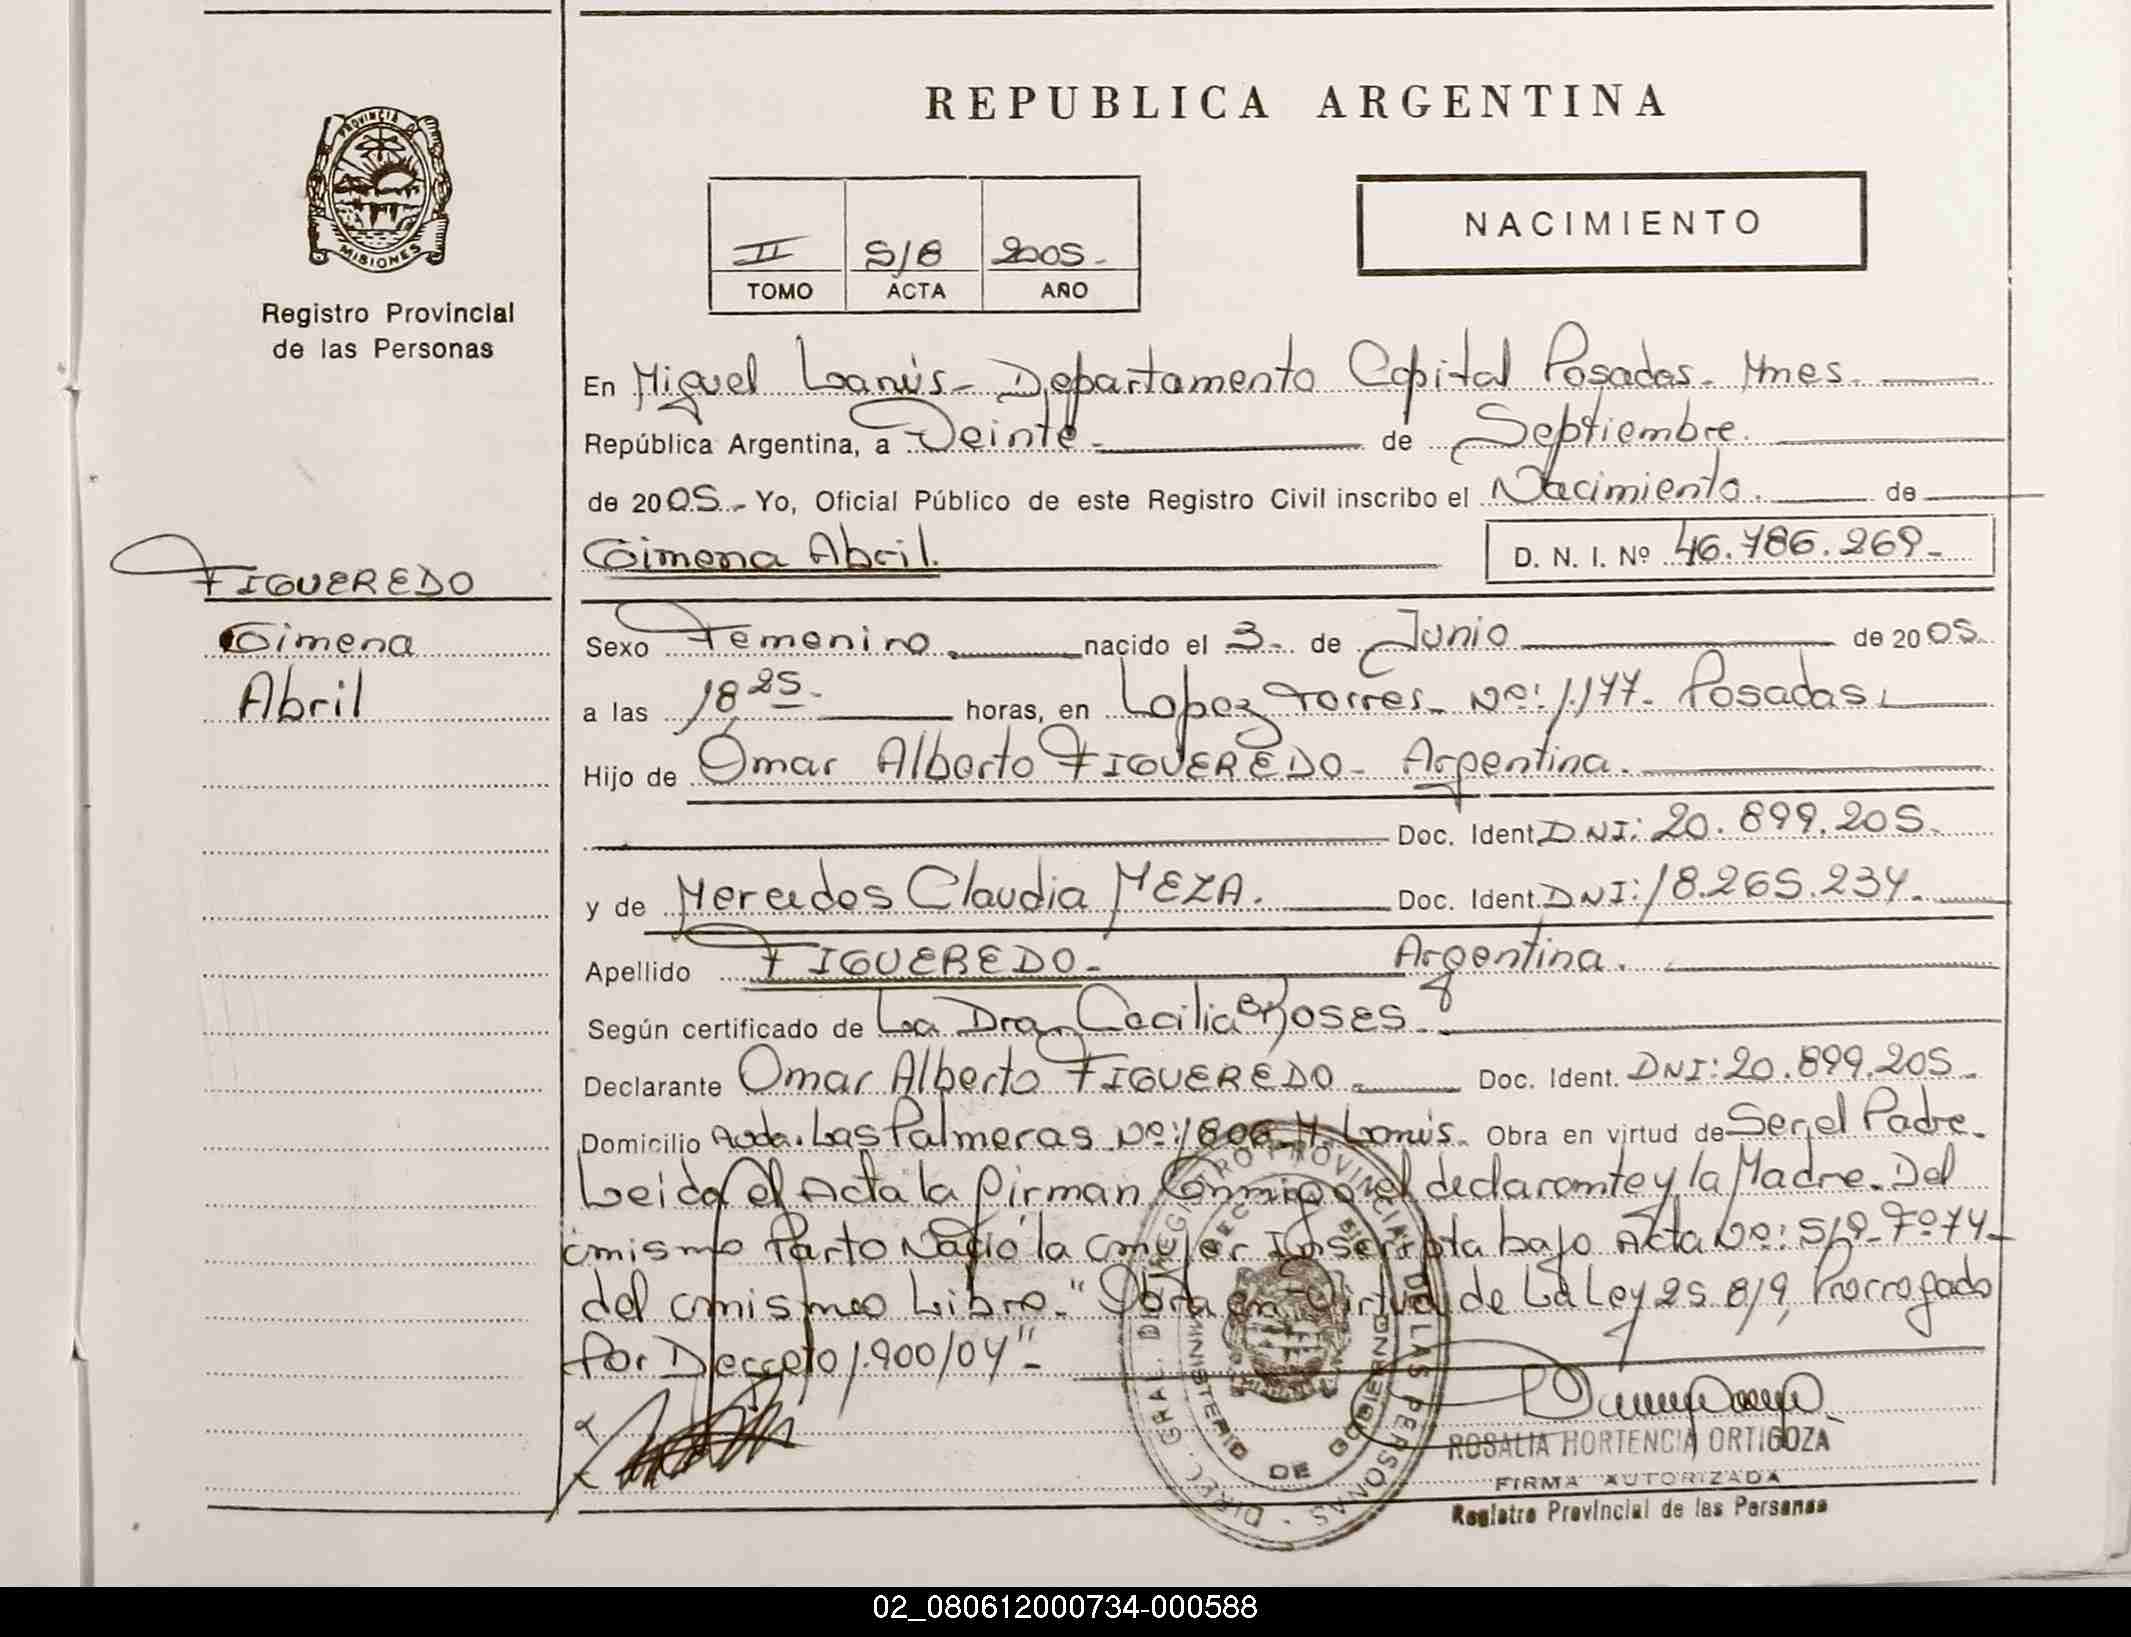 REPUBLICA ARGENTINA
PROVINCIA D
MISIONES
Registro Provincial
de las Personas
II S/8 2005.-
TOMO ACTA AÑO
NACIMIENTO
En Miguel Lanús - Departamento Capital Posadas - Mnes.
República Argentina, a Veinte.- de Septiembre.
de 2005.- Yo, Oficial Público de este Registro Civil inscribo el Nacimiento. de
Gimena Abril. D. N. I. Nº 46.786.269.-
FIGUEREDO
Gimena
Abril
Sexo Femenino. nacido el 3.- de Junio de 2005.
a las 18,25.- horas, en Lopez Torres - Nº: 1.177.- Posadas.
Hijo de Omar Alberto FIGUEREDO - Argentina.
Doc. Ident. DNI: 20.899.205.
y de Mercedes Claudia MEZA. Doc. Ident. DNI: 18.265.234.-
Apellido FIGUEREDO.- Argentina.
Según certificado de La Dra. Cecilia B. Roses.
Declarante Omar Alberto FIGUEREDO.- Doc. Ident. DNI: 20.899.205.-
Domicilio Avda. Las Palmeras Nº: 1806 M. Lanús. Obra en virtud de Ser el Padre.
Leida el Acta la firman Conmigo el declarante y la Madre. Del
mismo Parto Nació la mujer Inscripta bajo Acta Nº: S/9 Fº 74-
del mismo Libro.- "Obra en Virtud de La Ley 25.819, Prorrogado
Por Decreto 1.900/04"-
DIREC. GRAL. DEL REGISTRO PROVINCIAL DE LAS PERSONAS -
MINISTERIO DE GOBIERNO
ROSALIA HORTENCIA ORTIGOZA
FIRMA AUTORIZADA
Registro Provincial de las Personas
02_080612000734-000588